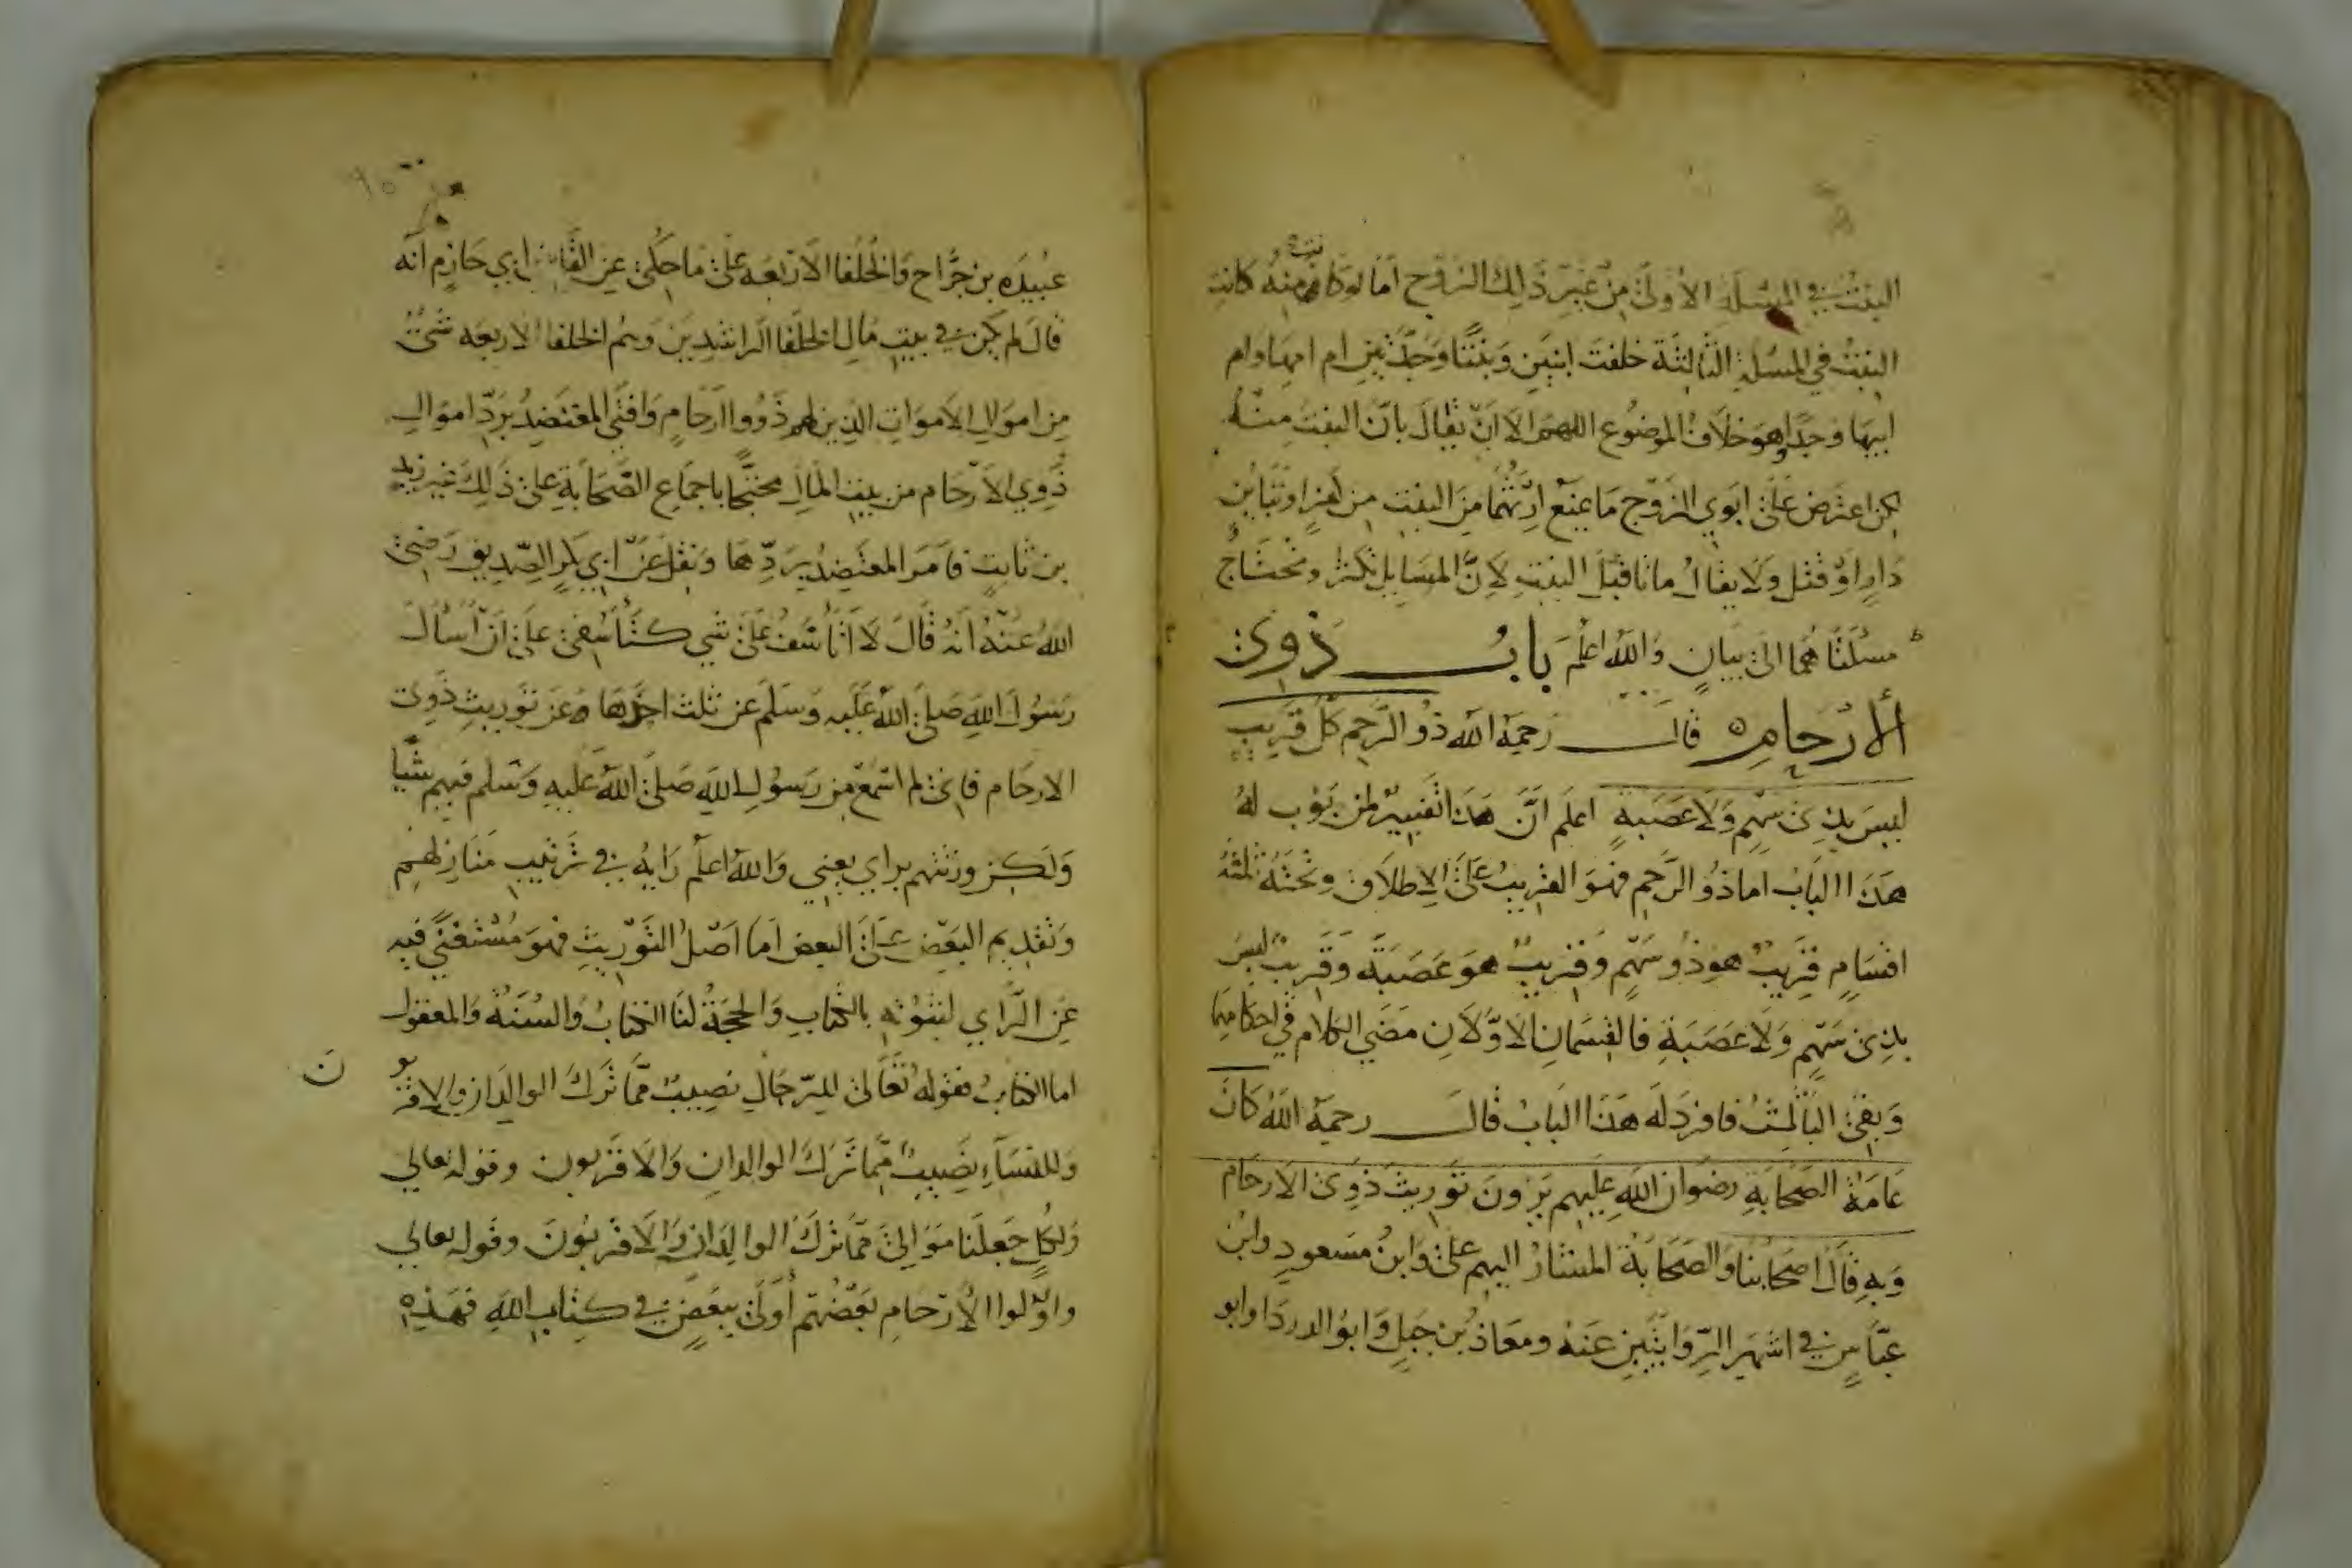 البنتُ في المسئلة الاولى من غير ذلك الزوج اما لو كانت منه كانت
البنت في المسئلة الثالثة خلفت ابنين وبنتا وجدتين ام امها وام
ابيها وجدا وهو خلاف الموضوع اللهم الا ان يقال بان البنت منه
لكن اعترض على ابوي الزوج ما يمنع ارثهما من البنت من كفر او تباين
دار او قتل ولا يقال ماتا قبل البنت لان المسايل تكثر وتحتاج
مسئلتاهما الى بيان والله اعلم باب ذوي
الارحام قال رحمه الله ذو الرحم كل قريب
ليس بذي سهم ولا عصبة اعلم ان هذا تفسير لمن بوب له
هذا الباب اما ذو الرحم فهو القريب على الاطلاق وتحته ثلثة
اقسام قريب هو ذو سهم وقريب هو عصبة وقريب ليس
بذي سهم ولا عصبة فالقسمان الاولان مضى الكلام في احكامهما
وبقي الثالث فافرد له هذا الباب قال رحمه الله كان
عامة الصحابة رضوان الله عليهم يرون توريث ذوي الارحام
وبه قال اصحابنا والصحابة المشار اليهم علي وابن مسعود وابن
عباس في اشهر الروايتين عنه ومعاذ بن جبل وابو الدردا وابو
عبيده بن جراح والخلفا الاربعه على ما حكى عن القاضي ابي حازم انه
قال لم يكن في بيت مال الخلفا الراشدين وهم الخلفا الاربعه شئ
من اموال الاموات الذين لهم ذووا ارحام وافتى المعتضد برد اموال
ذوي الارحام من بيت المال محتجا باجماع الصحابة على ذلك غير زيد
بن ثابت فامر المعتضد بردها ونقل عن ابي بكر الصديق رضي
الله عنه انه قال لا اتاسف على شي كتأسفي على ان أسأل
رسول الله صلى الله عليه وسلم عن ثلث احدها عن توريث ذوي
الارحام فاني لم اسمع من رسول الله صلى الله عليه وسلم فيهم شيا
ولكن ورثتهم براي يعني والله اعلم رايه في ترتيب منازلهم
وتقديم البعض على البعض اما اصل التوريث فهو مستغنى فيه
عن الراي لثبوته بالكتاب والحجة لنا الكتاب والسنة والمعقول
اما الكتاب فقوله تعالى للرجال نصيب مما ترك الوالدان والاقربون
وللنساء نصيب مما ترك الوالدان والاقربون وقوله تعالي
ولكل جعلنا موالي مما ترك الوالدان والاقربون وقوله تعالي
واولوا الارحام بعضهم أولى ببعض في كتاب الله فهذه